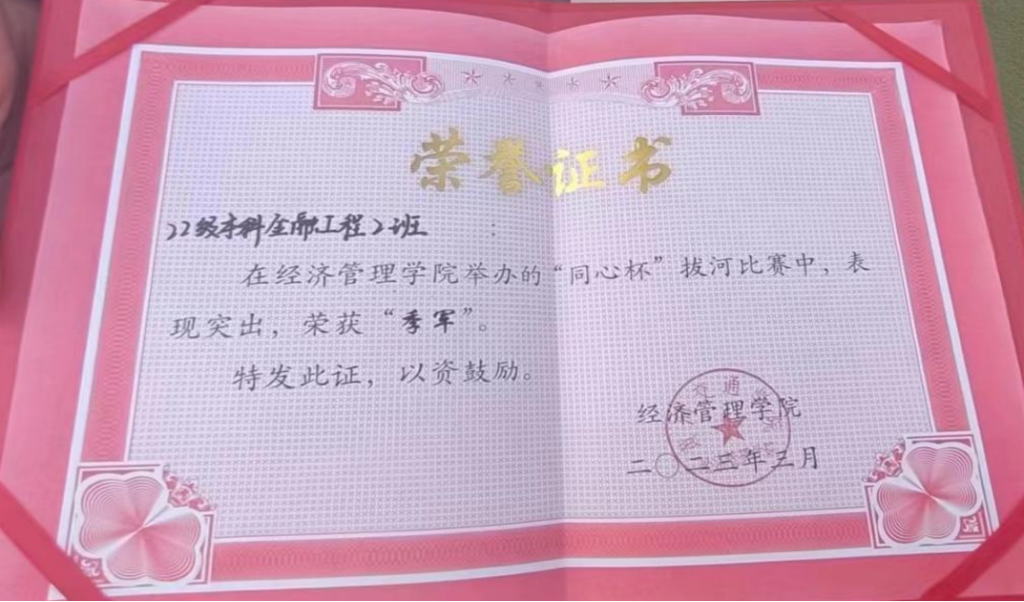 荣誉证书
22级本科金融工程2班：
在经济管理学院举办的“同心杯”拔河比赛中，表
现突出，荣获“季军”。
特发此证，以资鼓励。
经济管理学院
二〇二三年三月
交通